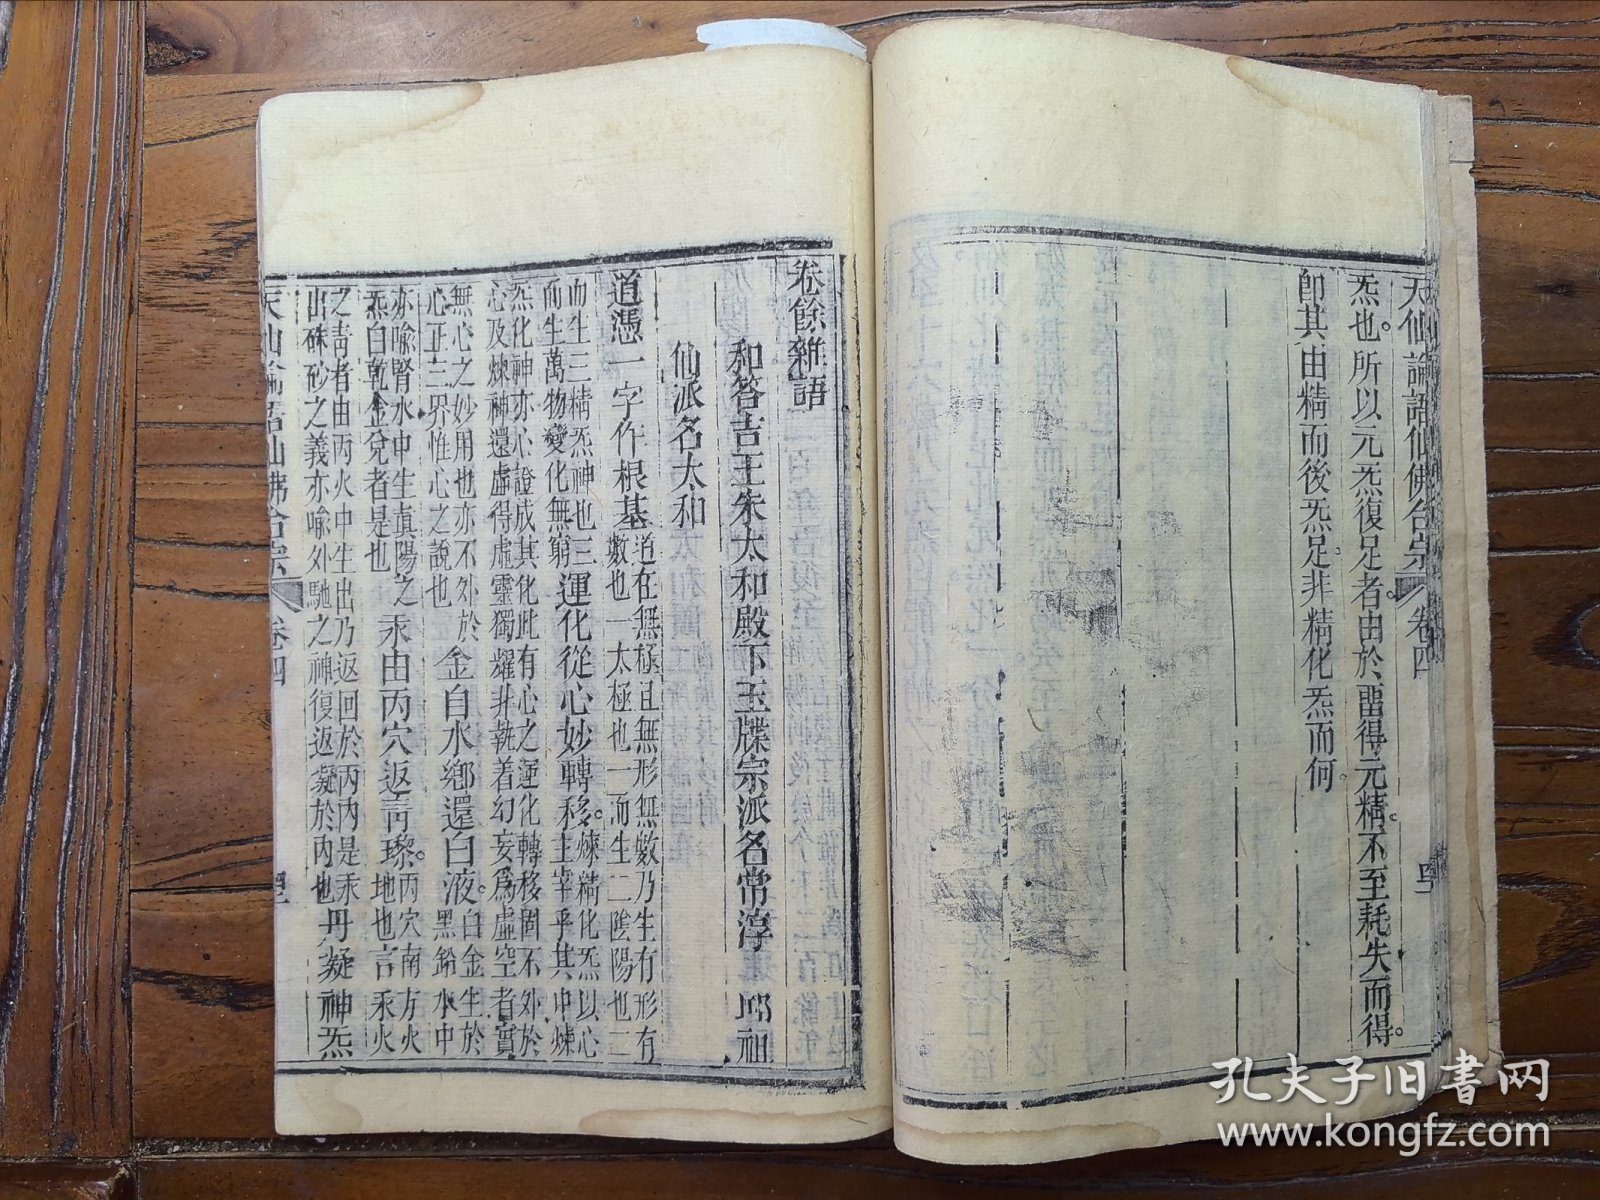 天仙論語仙佛合宗 卷四
炁也。所以元炁復足者。由於畱得元精。不至耗失而得。
卽其由精而後炁足。非精化炁而何。
卷餘雜語
和答吉王朱太和殿下玉牒宗派名常淳 邱祖
仙派名太和
道憑一字作根基 道在無極且無形無數乃生有形有
數也一太極也一而生二陰陽也二
而生三精炁神也三
而生萬物變化無窮 運化從心妙轉移。 煉精化炁以心
主宰乎其中煉
炁化神亦心證成其化此有心之運化轉移固不外於
心及煉神還虛得虛靈獨耀非執着幻妄爲虛空者實
無心之妙用也亦不外於
心正三界惟心之說也 金自水鄉還白液。 白金生於
黑鉛水中
亦喻腎水中生眞陽之
炁白乾金兌者是也 汞由丙穴返靑 丙穴南方火
地也言汞火
之靑者由丙火中生出乃返回於丙内是汞
出硃砂之義亦喻外馳之神復返凝於内也 丹凝神炁
天仙論語仙佛合宗 卷四
孔夫子旧书网
www.kongfz.com